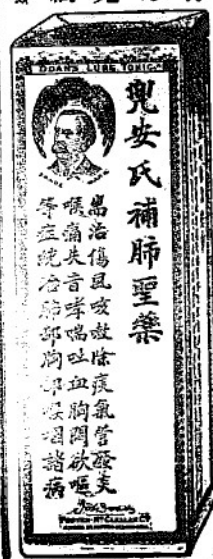 DOAN'S LUNG TONIC
兜安氏補肺聖藥
耑治傷風咳嗽除痰氣管發炎
喉痛失音哮喘吐血胸悶欲嘔
等症統治肺部胸部喉咽諸病
FOSTER-McCLELLAN Co